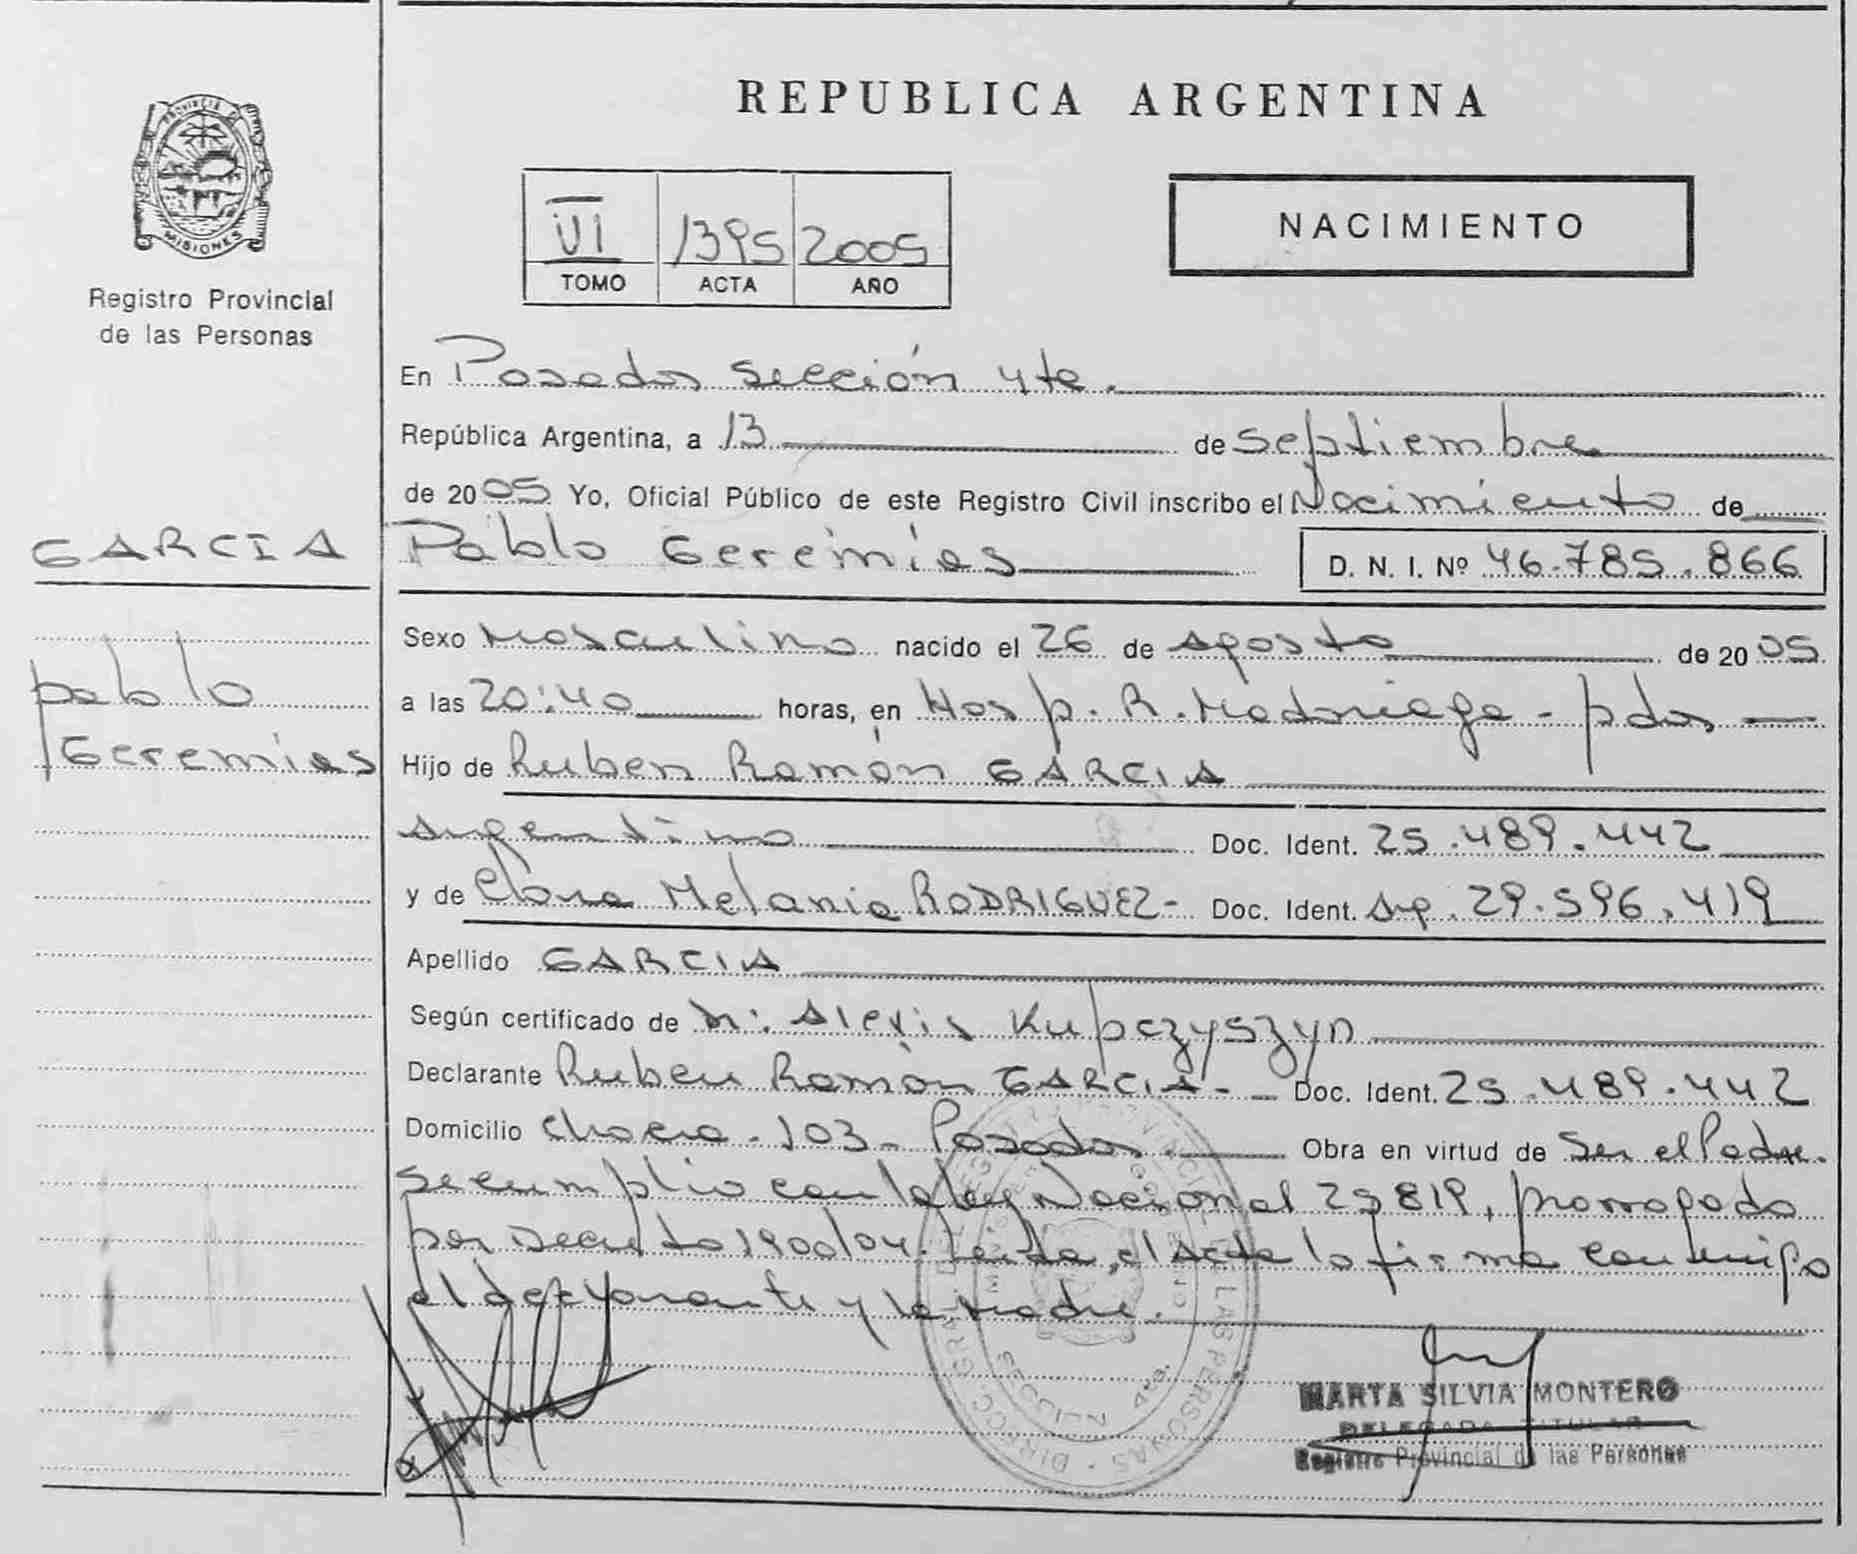 REPUBLICA ARGENTINA
PROVINCIA DE MISIONES
Registro Provincial
de las Personas
VI 1395 2005
TOMO ACTA AÑO
NACIMIENTO
En Posadas sección 4ta.
República Argentina, a 13 de septiembre
de 2005 Yo, Oficial Público de este Registro Civil inscribo el Nacimiento de
GARCIA
Pablo Geremías D. N. I. Nº 46.785.866
Sexo Masculino nacido el 26 de agosto de 2005
pablo
Geremias
a las 20:40 horas, en Hosp. R. Madariaga - pdas
Hijo de Ruben Ramón GARCIA
argentino Doc. Ident. 25.489.442
y de Melania RODRIGUEZ- Doc. Ident. Arg. 29.596.419
Apellido GARCIA
Según certificado de Dr: Alexis Kupczyszyn
Declarante Ruben Ramón GARCIA- Doc. Ident. 25.489.442
Domicilio Chacra - 103 - Posadas Obra en virtud de Ser el Padre.
se cumplio con la ley Nacional 25819, prorrogada
por Decreto 1900/04. Leida, el acta la firma conmigo
el declarante y la madre.
SECCION 4ta.
MARTA SILVIA MONTERO
DELEGADA TITULAR
Registro Provincial de las Personas